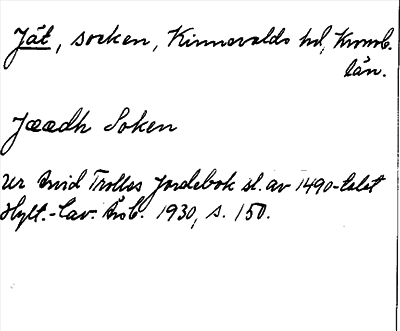 Jät, socken, Kinnevalds hd, Kronob.
län.
Jaadh Soken
Ur Arvid Trolles Jordebok sl. av 1490-talet
Hylt.-Cav. Årsb. 1930, s. 150.